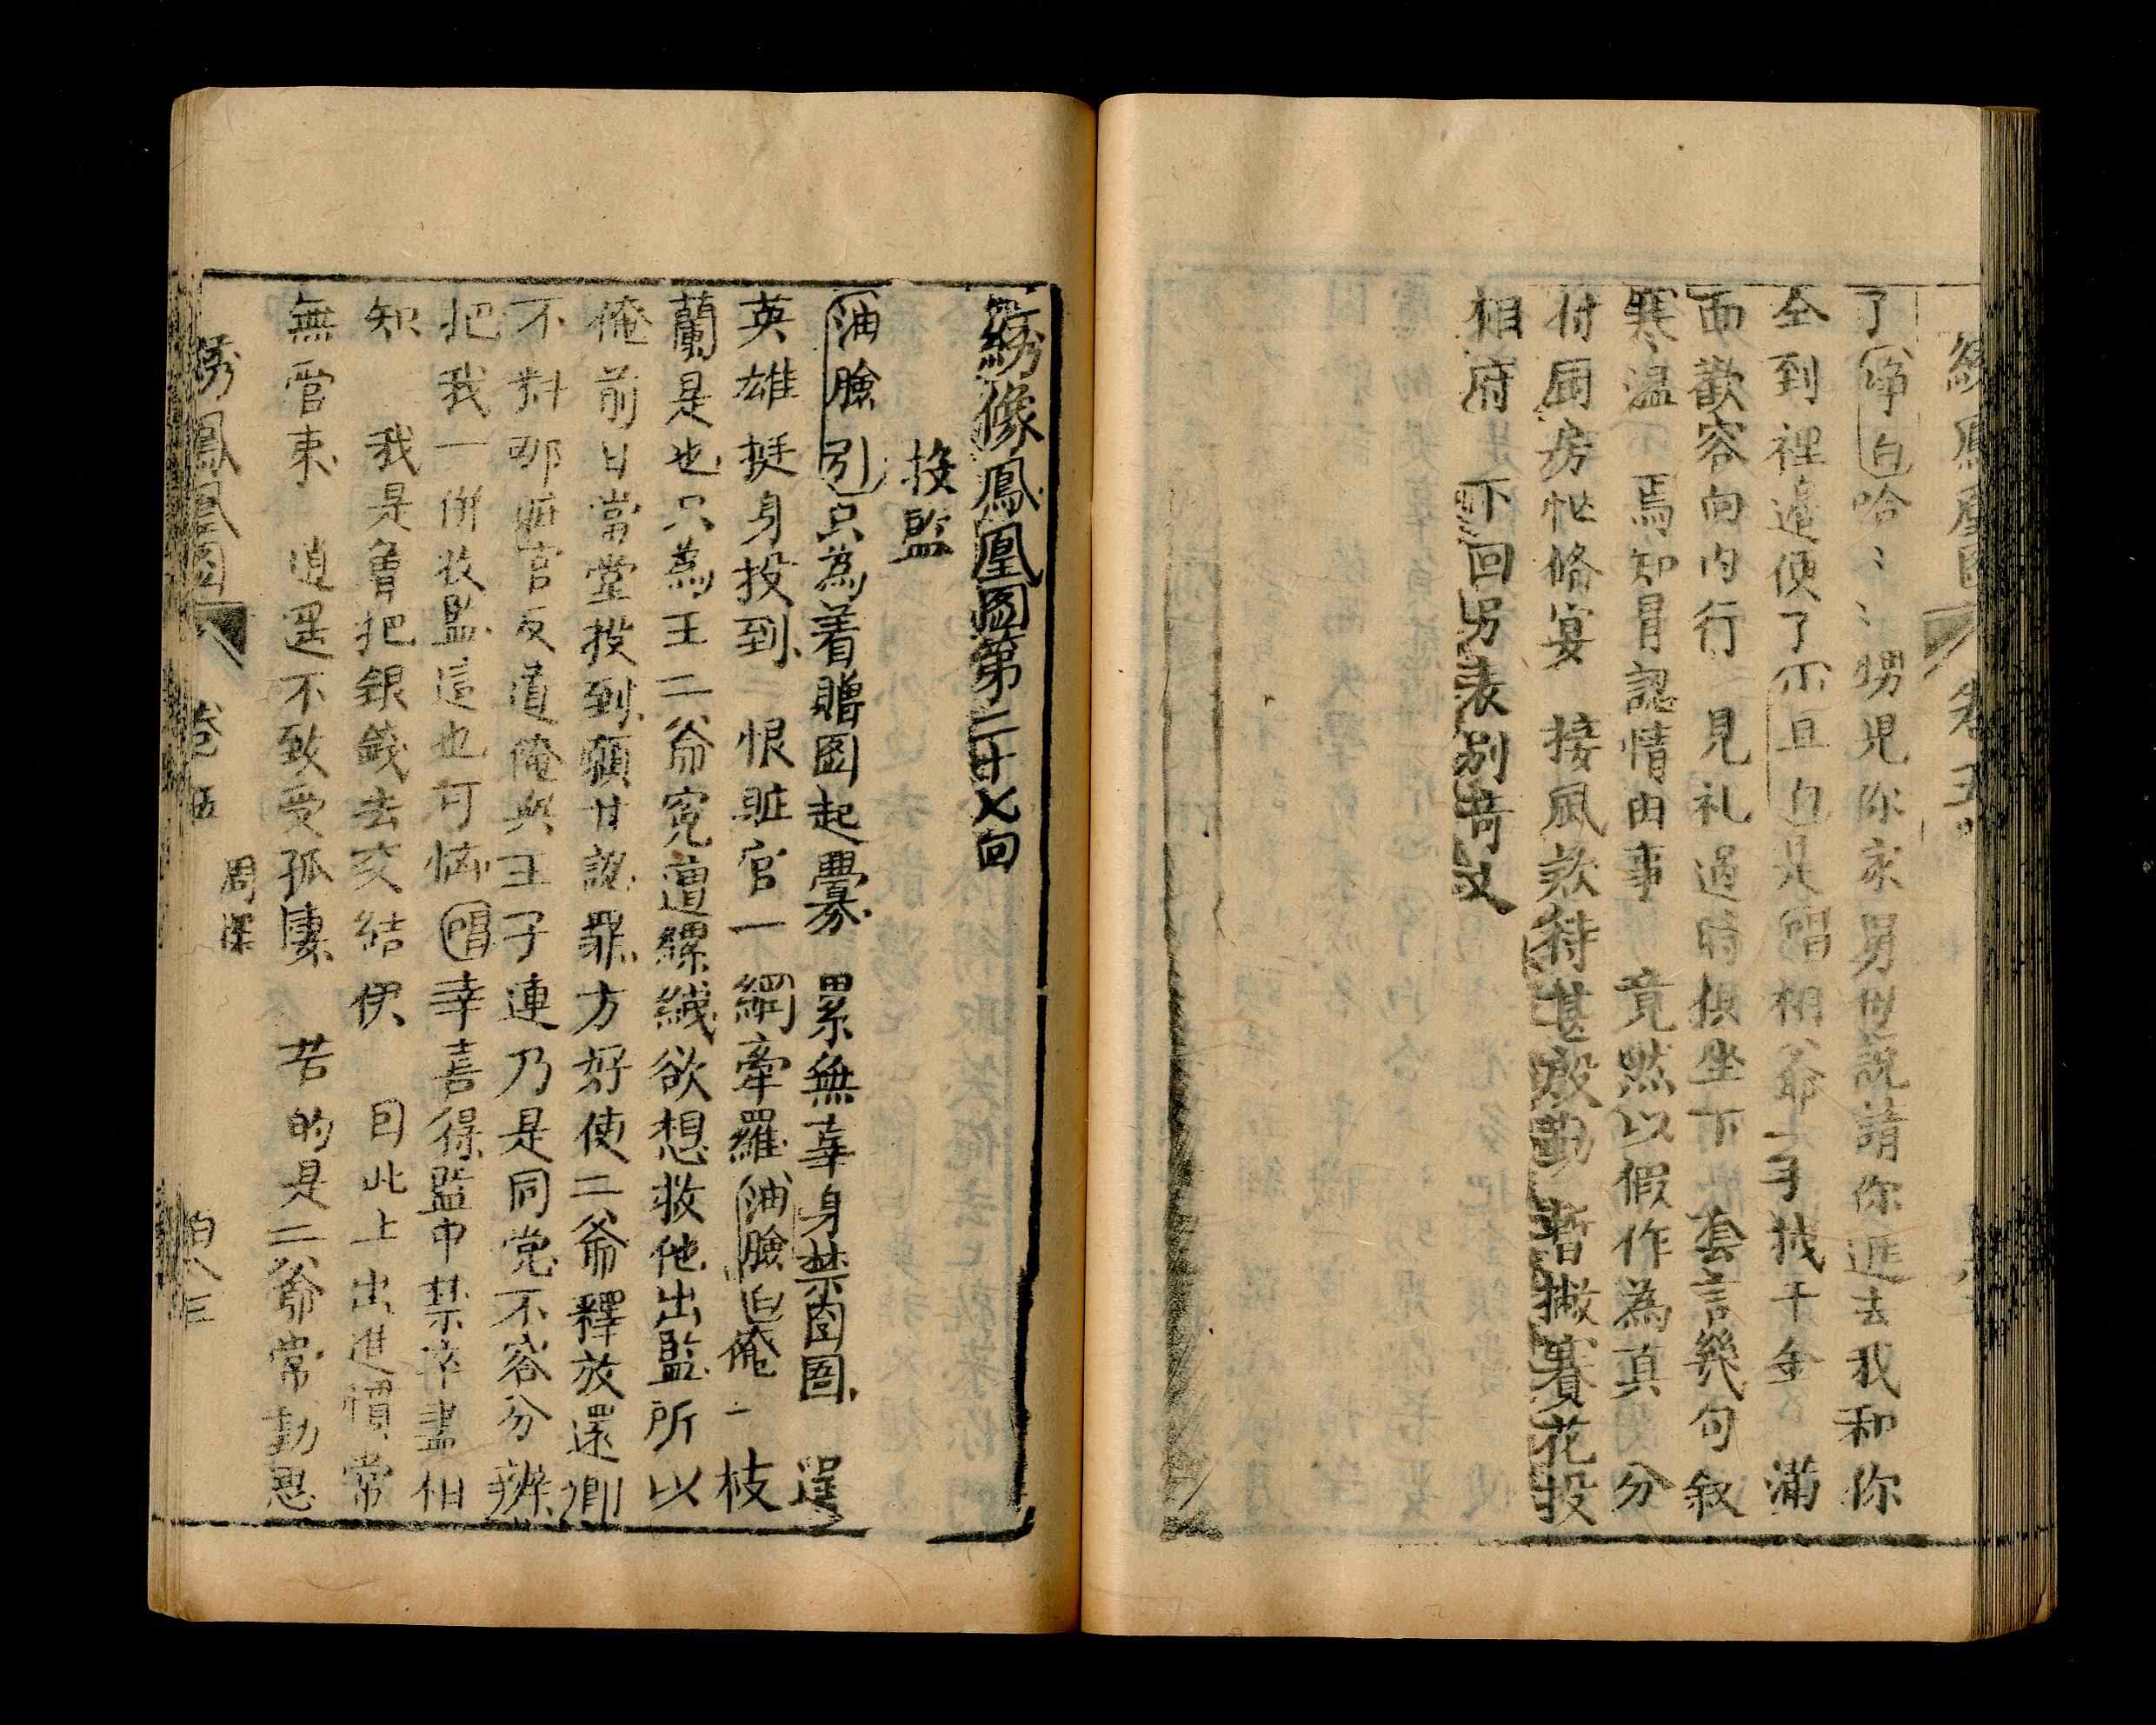 綉鳳凰圖 卷五
了 淨白 哈〻〻甥児你家男世說請你進去我和你
全到裡邊便了 小旦白 是 唱 相爷一手挽千金 滿
面歡容向内行 見礼過時俱坐下 套言幾句叙
寒温 焉知冒認情由事 竟然以假作為真 分
付厨房忙偹宴 接風款待甚殷勤 暫撇賽花投
相府 下回另表别奇文
綉像鳳凰圖第二十七回
投監
油臉引 只為着贈圖起釁 累無辜身禁囹圄 逞
英雄挺身投到 恨賍官一網牽羅 油臉白 俺一枝
蘭是也只為王二爺寃遭縲絏欲想救他出監所以
俺前日當堂投到願甘認罪方好使二爺釋放還鄉
不料那賍官反道俺與王子連乃是同党不容分辨
把我一併收監這也可惱 唱 幸喜得監中禁卒盡相
知 我是曾把銀錢去交結伊 因此上出進慣常
無管束 逍遥不致受孤悽 苦的是二爺常動思
綉鳳凰圖 卷五